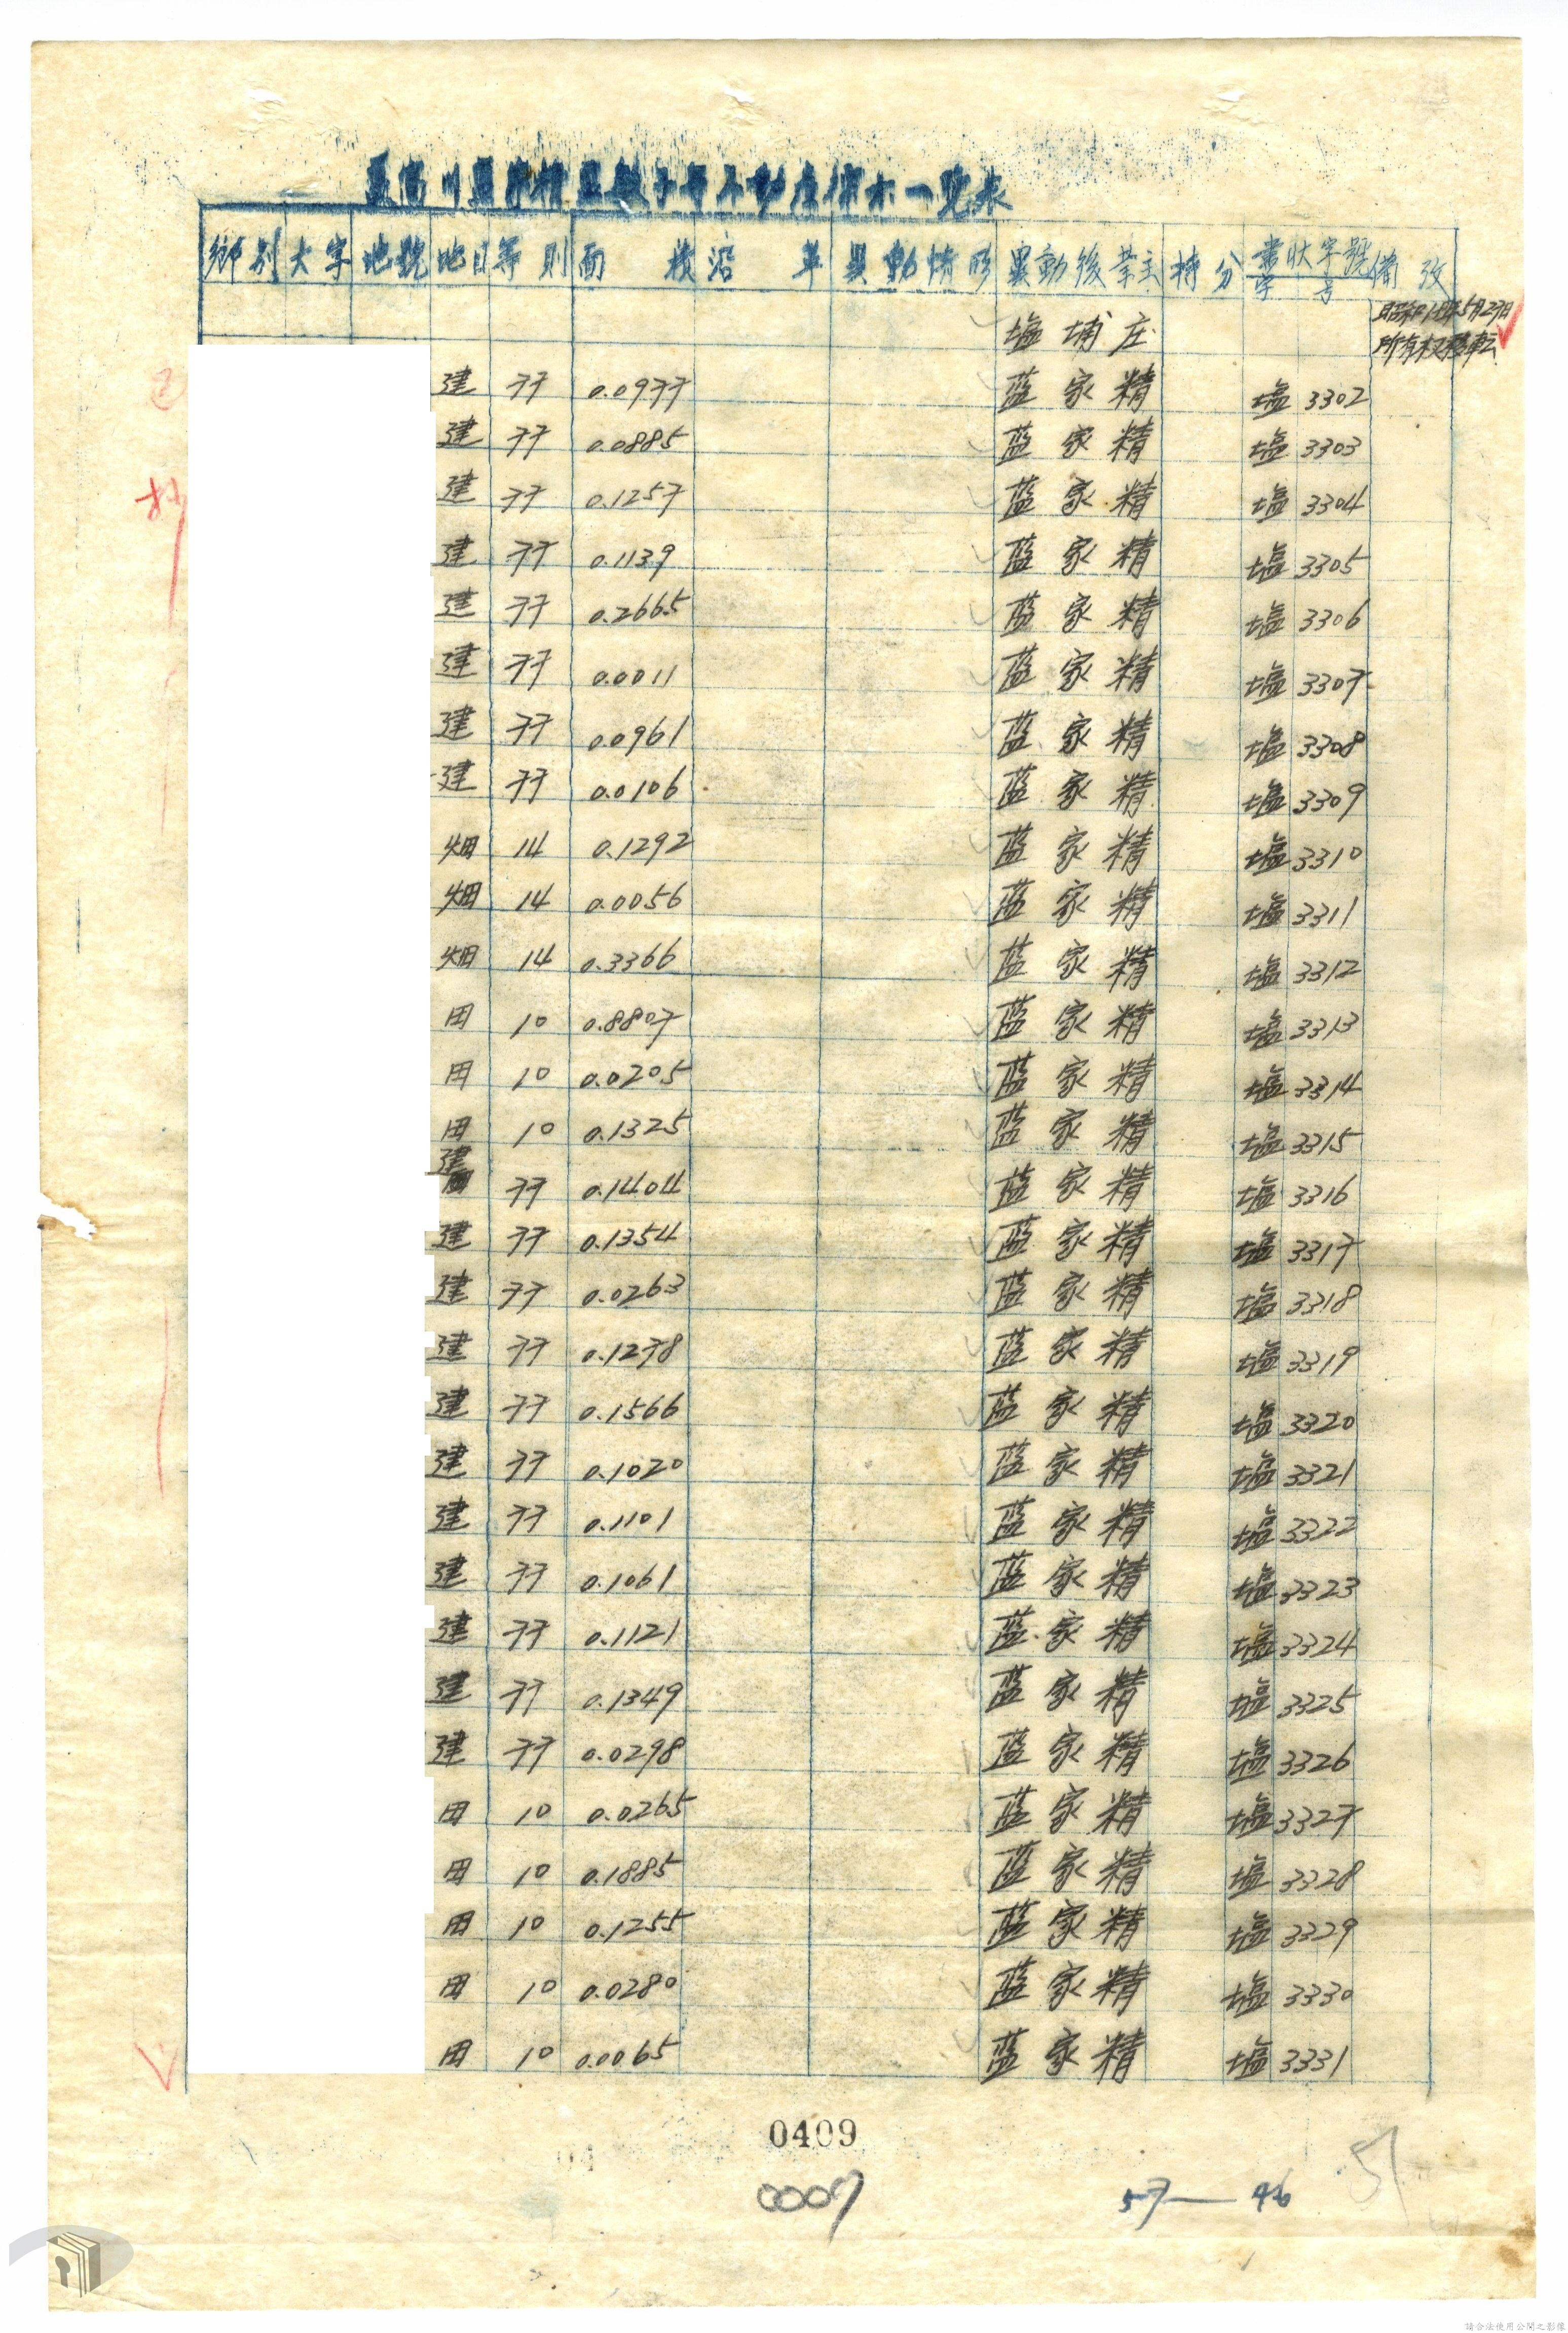 一覽表
鄉別 大字 地號 地目 等則 面積 沿革 異動情形 異動後業主 持分 書狀字號 備攷
字 号
塩埔庄
5月27日
所有权移転
建 〃 0.0977 蓝家精 塩 3302
建 〃 0.0885 蓝家精 塩 3303
建 〃 0.1257 蓝家精 塩 3304
建 〃 0.1139 蓝家精 塩 3305
建 〃 0.2665 蓝家精 塩 3306
建 〃 0.0011 蓝家精 塩 3307
建 〃 0.0961 蓝家精 塩 3308
建 〃 0.0106 蓝家精 塩 3309
畑 14 0.1292 蓝家精 塩 3310
畑 14 0.0056 蓝家精 塩 3311
畑 14 0.3366 蓝家精 塩 3312
田 10 0.8807 蓝家精 塩 3313
田 10 0.0205 蓝家精 塩 3314
田 10 0.1325 蓝家精 塩 3315
建 〃 0.1404 蓝家精 塩 3316
建 〃 0.1354 蓝家精 塩 3317
建 〃 0.0263 蓝家精 塩 3318
建 〃 0.1278 蓝家精 塩 3319
建 〃 0.1566 蓝家精 塩 3320
建 〃 0.1020 蓝家精 塩 3321
建 〃 0.1101 蓝家精 塩 3322
建 〃 0.1061 蓝家精 塩 3323
建 〃 0.1121 蓝家精 塩 3324
建 〃 0.1349 蓝家精 塩 3325
建 〃 0.0298 蓝家精 塩 3326
田 10 0.0265 蓝家精 塩 3327
田 10 0.1885 蓝家精 塩 3328
田 10 0.1255 蓝家精 塩 3329
田 10 0.0280 蓝家精 塩 3330
田 10 0.0065 蓝家精 塩 3331
0409
0007
57—46
51
請合法使用公開之影像